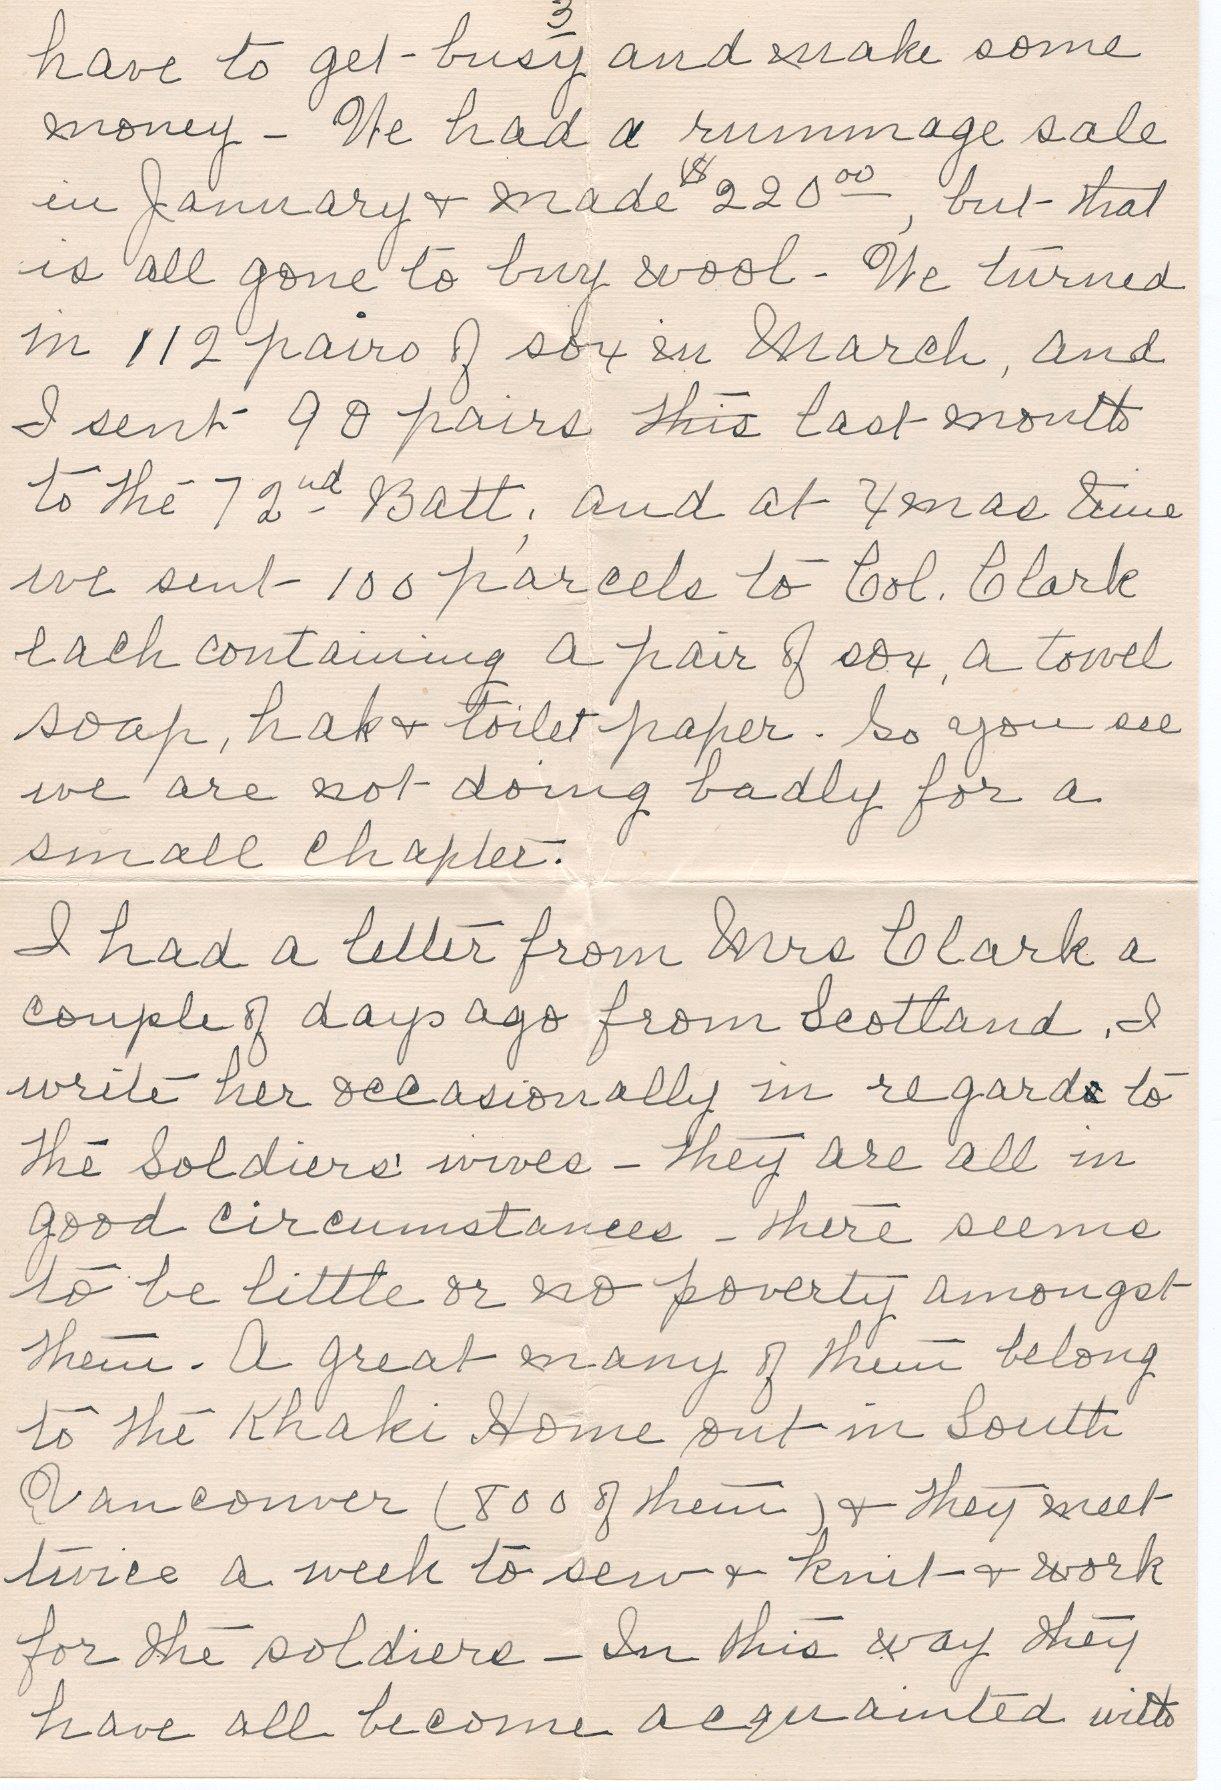 3
have to get busy and make some
money - We had a rummage sale
in January & made $220.00, but that
is all gone to buy wool - We turned
in 112 pairs of sox in March, and
I sent 90 pairs this last month
to the 72nd Batt, and at Xmas time
we sent 100 parcels to Col. Clark
each containing a pair of sox, a towel
soap, hak & toilet paper. So you see
we are not doing badly for a
small chapter.
I had a letter from Mrs Clark a
couple of days ago from Scotland. I
write her occasionally in regards to
the Soldiers' wives - they are all in
good circumstances - there seems
to be little or no poverty amongst
them. A great many of them belong
to the Khaki Home out in South
Vancouver (800 of them) & they meet
twice a week to sew & knit & work
for the soldiers - In this way they
have all become acquainted with